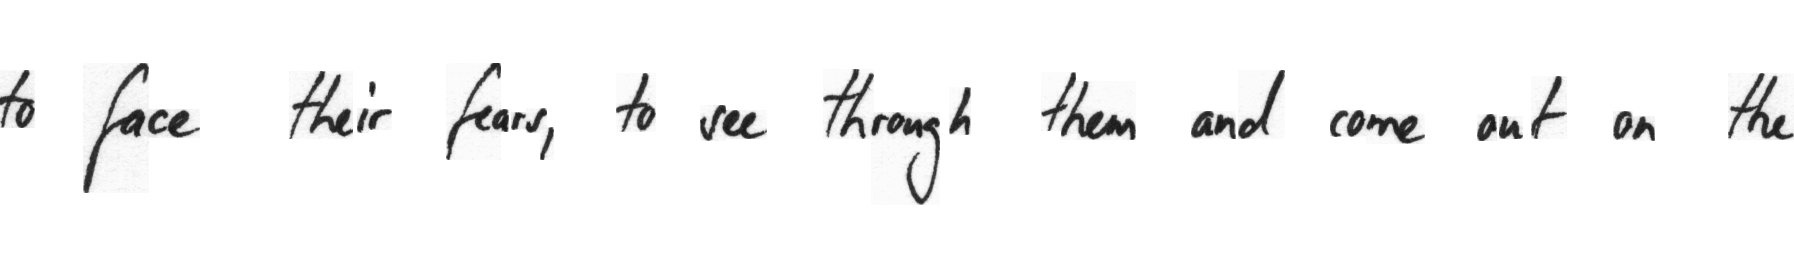 to face their fears, to see through them and come out on the